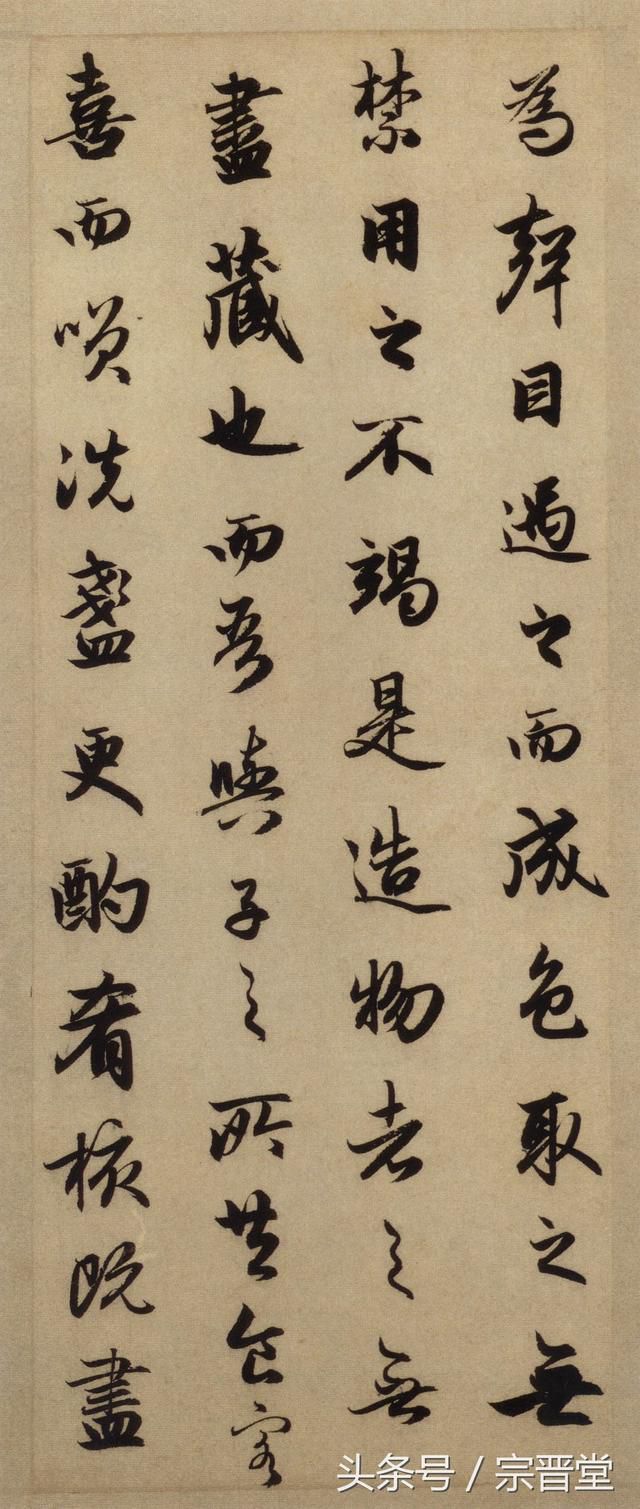 為聲目遇之而成色取之無
禁用之不竭是造物者之無
盡藏也而吾與子之所共食客
喜而咲洗盞更酌肴核既盡
头条号 / 宗晋堂